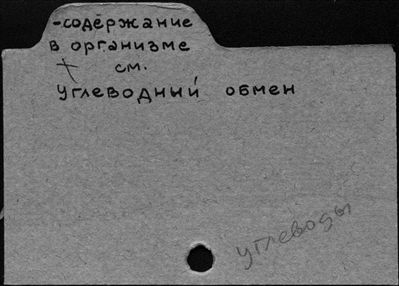 -содержание
в организме
см.
углеводный обмен
углеводы